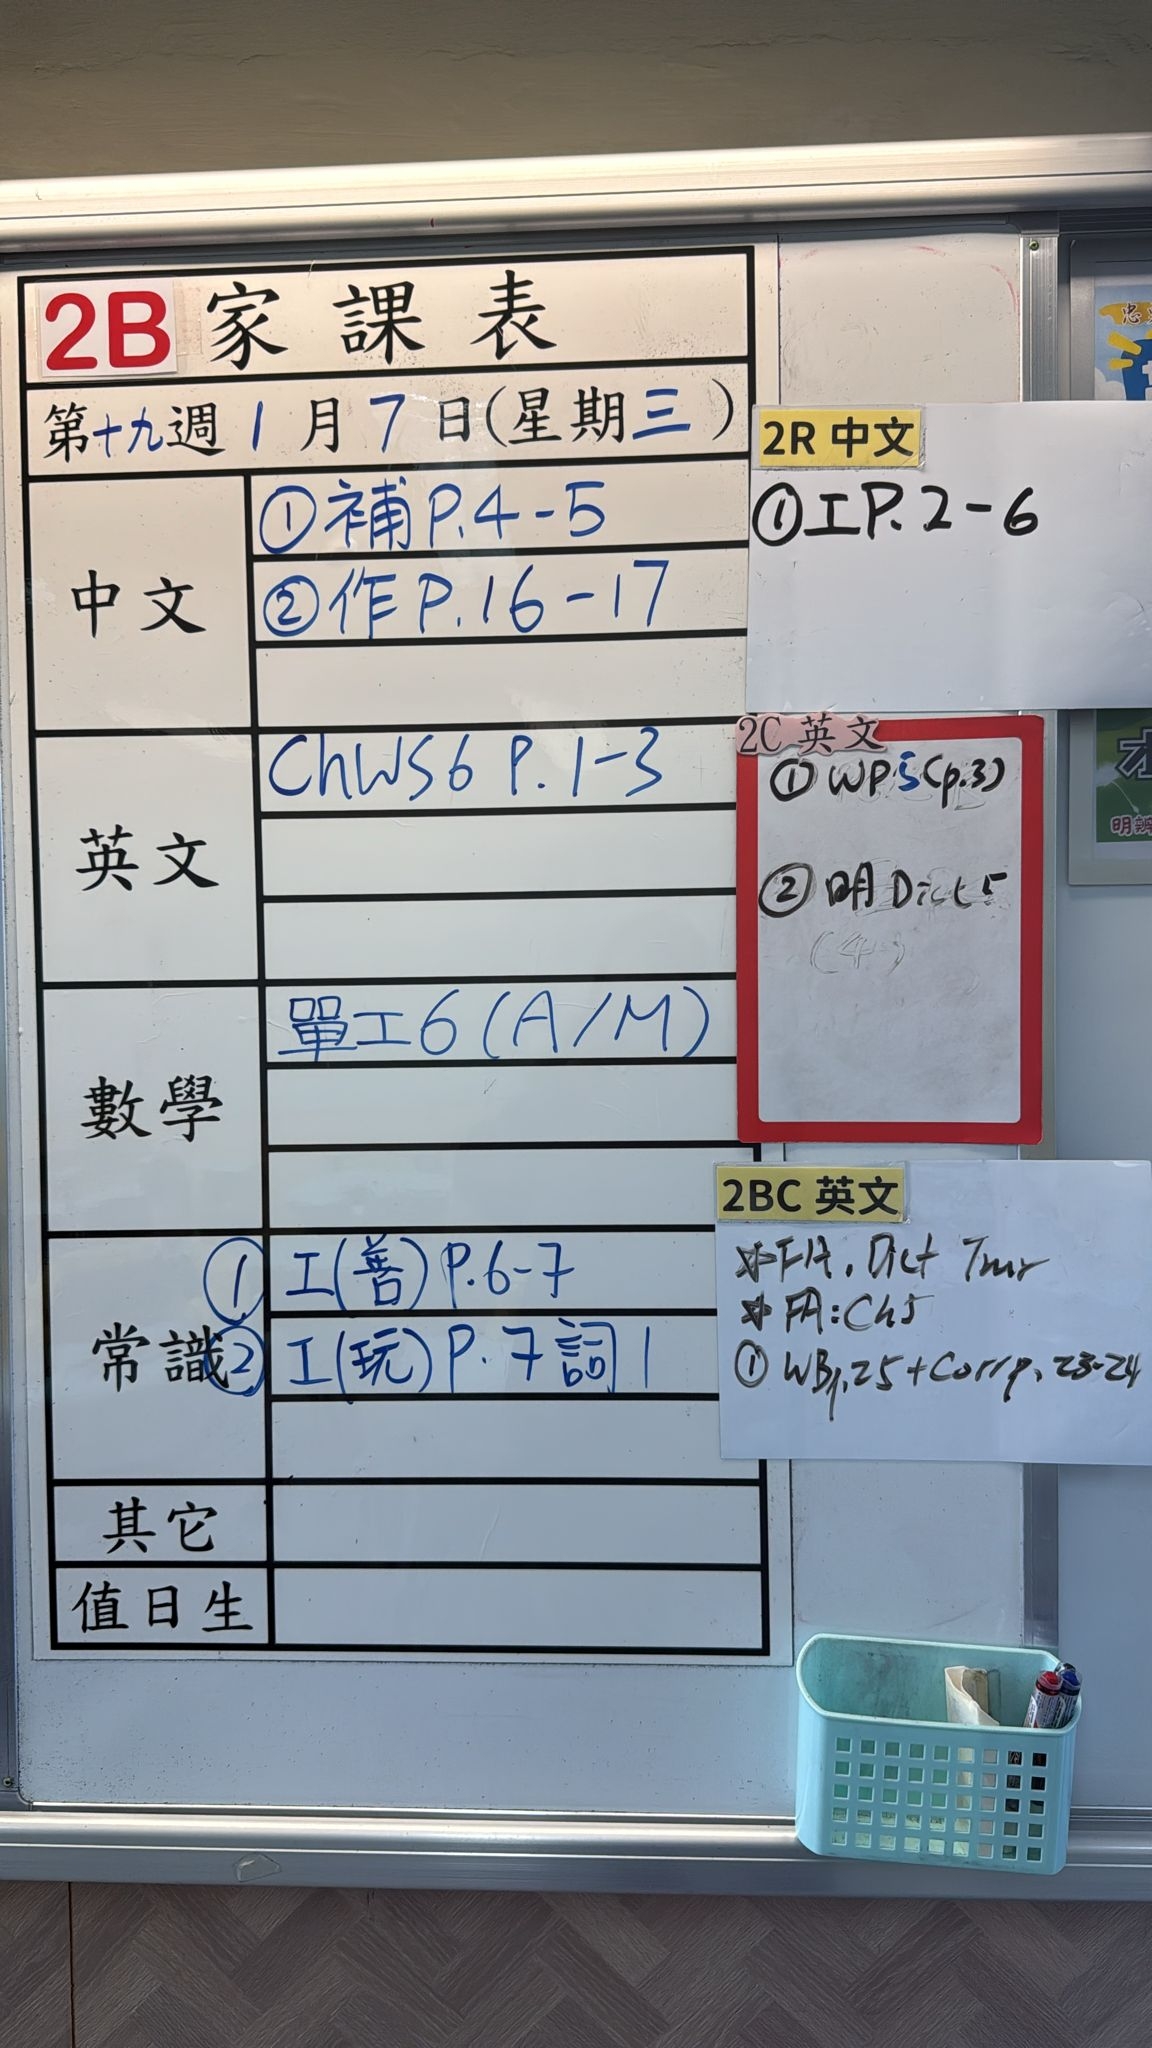 2B 家課表
第十九週 1 月 7 日(星期三)
中文
①補 P.4-5
②作 P.16-17
英文
ChWS6 P.1-3
數學
單工6(A/M)
常識
① 工(善) P.6-7
② 工(玩) P.7 詞1
其它
值日生
2R 中文
①工P.2-6
2C 英文
① WP5(p.3)
② 明 Dict 5
2BC 英文
☆FA. Dict Tmr
☆ FA: Ch5
① WBp.25 + Corr p.23-24
忠
明辨